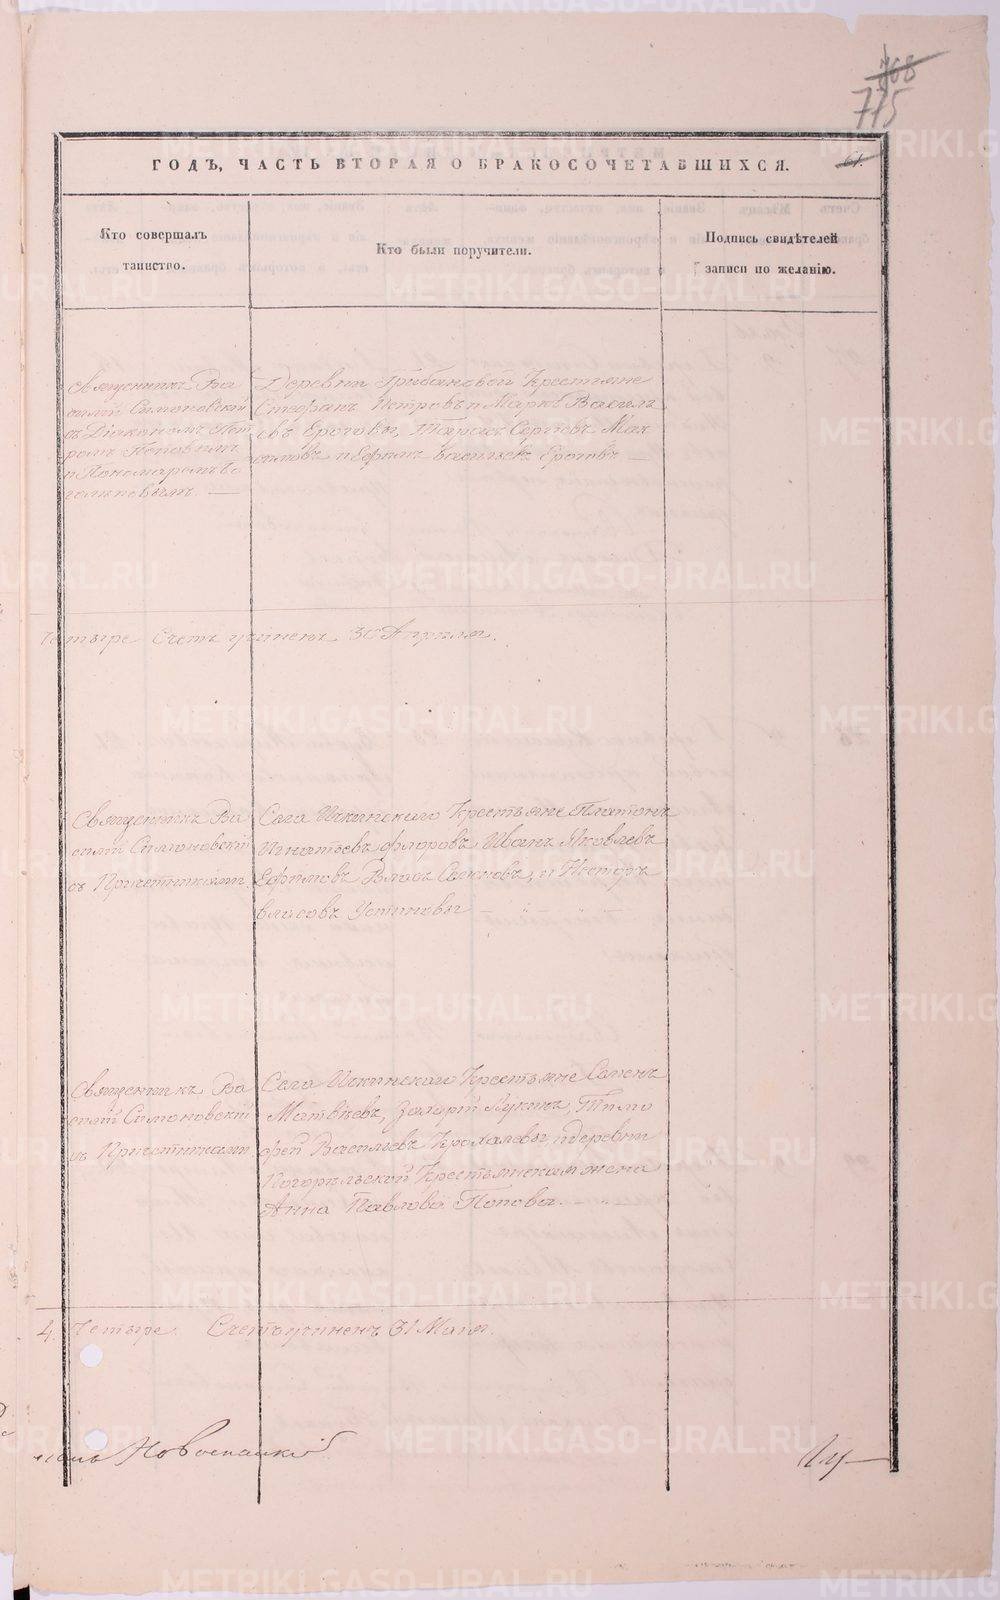 768
715
ГОДЪ, ЧАСТЬ ВТОРАЯ О БРАКОСОЧЕТАВШИХСЯ.
61.
Кто совершалъ
таинство.
Кто были поручители.
Подпись свидѣтелей
записи по желанію.
Священникъ Ва
силій Симоновскій
съ Діакономъ Пет
ромъ Поповымъ
и Пономаремъ
Деревни Грибановой Крестьяне
Стефанъ Петровъ и Марко Василь
евъ Ероговы, Тарасъ Сергѣевъ Мак
симовъ и Ефимъ Васильевъ Ероговъ —
Четыре Счетъ учиненъ 30 Апрѣля.
Священникъ Ва
силій Симоновскій
съ Причетниками.
Села Ичкинскаго Крестьяне Платонъ
Игнатьевъ Флоровъ, Иванъ Яковлевъ
Ефимовъ Власъ Семеновъ, и Несторъ
Власовъ Устиновы
Священникъ Ва
силій Симоновскій
съ Причетниками
Села Ичкинскаго Крестьяне Семенъ
Матвѣевъ, Захарій Лукинъ, Тимо
фей Васильевъ Крохалевы, и деревни
Погорѣльской Крестьянская жена
Анна Павлова Попова.
4. Четыре. Счетъ учиненъ 31 Мая.
Новоспасскій
METRIKI.GASO-URAL.RU